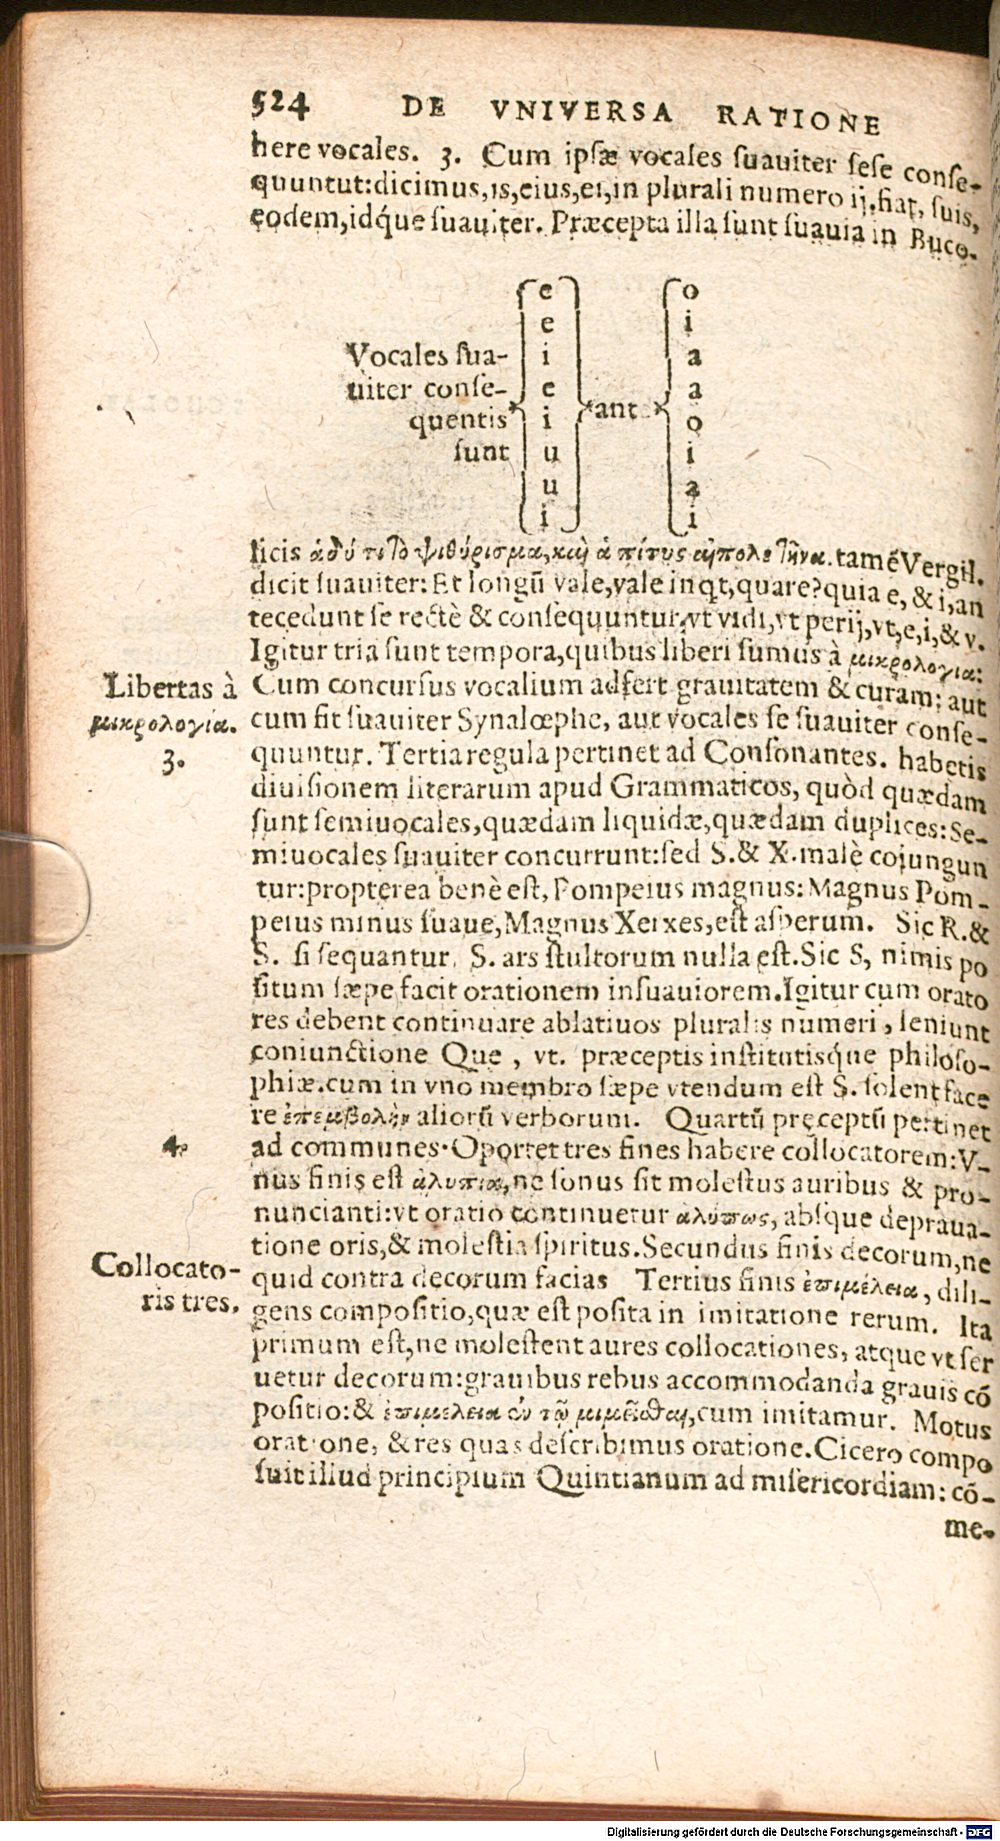 524 DE VNIVERSA RATIONE
here vocales. 3. Cum ipsæ vocales suauiter sese conse-
quuntut:dicimus,is,eius,ei,in plurali numero ij.fiat, suis,
eodem,idq́ue suauiter. Præcepta illa sunt suauia in Buco-
Vocales sua-
uiter conse-
quentis
sunt
e
e
i
e
i
u
u
i
ant
o
i
a
a
o
i
a
i
licis ἁδύ τι τὸ ψιθύρισμα, καὶ ἁ πίτυς αἰπόλε τῆνα. tamē Vergil.
dicit suauiter: Et longū vale,vale inqt,quare?quia e, & i,an
tecedunt se rectè & consequuntur,vt vidi,vt perij,vt,e,i,& v.
Igitur tria sunt tempora,quibus liberi sumus à μικρολογία:
Libertas à
μικρολογία.
3.
Cum concursus vocalium adfert grauitatem & curam: aut
cum fit suauiter Synalœphe, aut vocales se suauiter conse-
quuntur. Tertia regula pertinet ad Consonantes. habetis
diuisionem literarum apud Grammaticos, quòd quædam
sunt semiuocales,quædam liquidæ,quædam duplices:Se-
miuocales suauiter concurrunt:sed S.& X.malè cojungun
tur:propterea benè est, Pompeius magnus: Magnus Pom-
peius minus suaue,Magnus Xerxes,est asperum. Sic R.&
S. si sequantur. S. ars stultorum nulla est.Sic S, nimis po
situm sæpe facit orationem insuauiorem.Igitur cum orato
res debent continuare ablatiuos pluralis numeri, leniunt
coniunctione Que , vt. præceptis institutisq́ue philoso-
phiæ.cum in vno membro sæpe vtendum est S. solent face
re ἐπεμβολὴν aliorū verborum. Quartū pręceptū pertinet
4.
ad communes.Oportet tres fines habere collocatorem:V-
nus finis est ἀλυπία,ne sonus sit molestus auribus & pro-
nuncianti:vt oratio continuetur ἀλύπως, absque depraua-
tione oris,& molestia spiritus.Secundus finis decorum,ne
Collocato-
ris tres.
quid contra decorum facias Tertius finis ἐπιμέλεια, dili-
gens compositio,quæ est posita in imitatione rerum. Ita
primum est,ne molestent aures collocationes, atque vt ser
uetur decorum:grauibus rebus accommodanda grauis cō
positio:& ἐπιμέλεια ἐν τῷ μιμεῖσθαι,cum imitamur. Motus
oratione, & res quas describimus oratione.Cicero compo
suit illud principium Quintianum ad misericordiam: cō-
me-
Digitalisierung gefördert durch die Deutsche Forschungsgemeinschaft - DFG